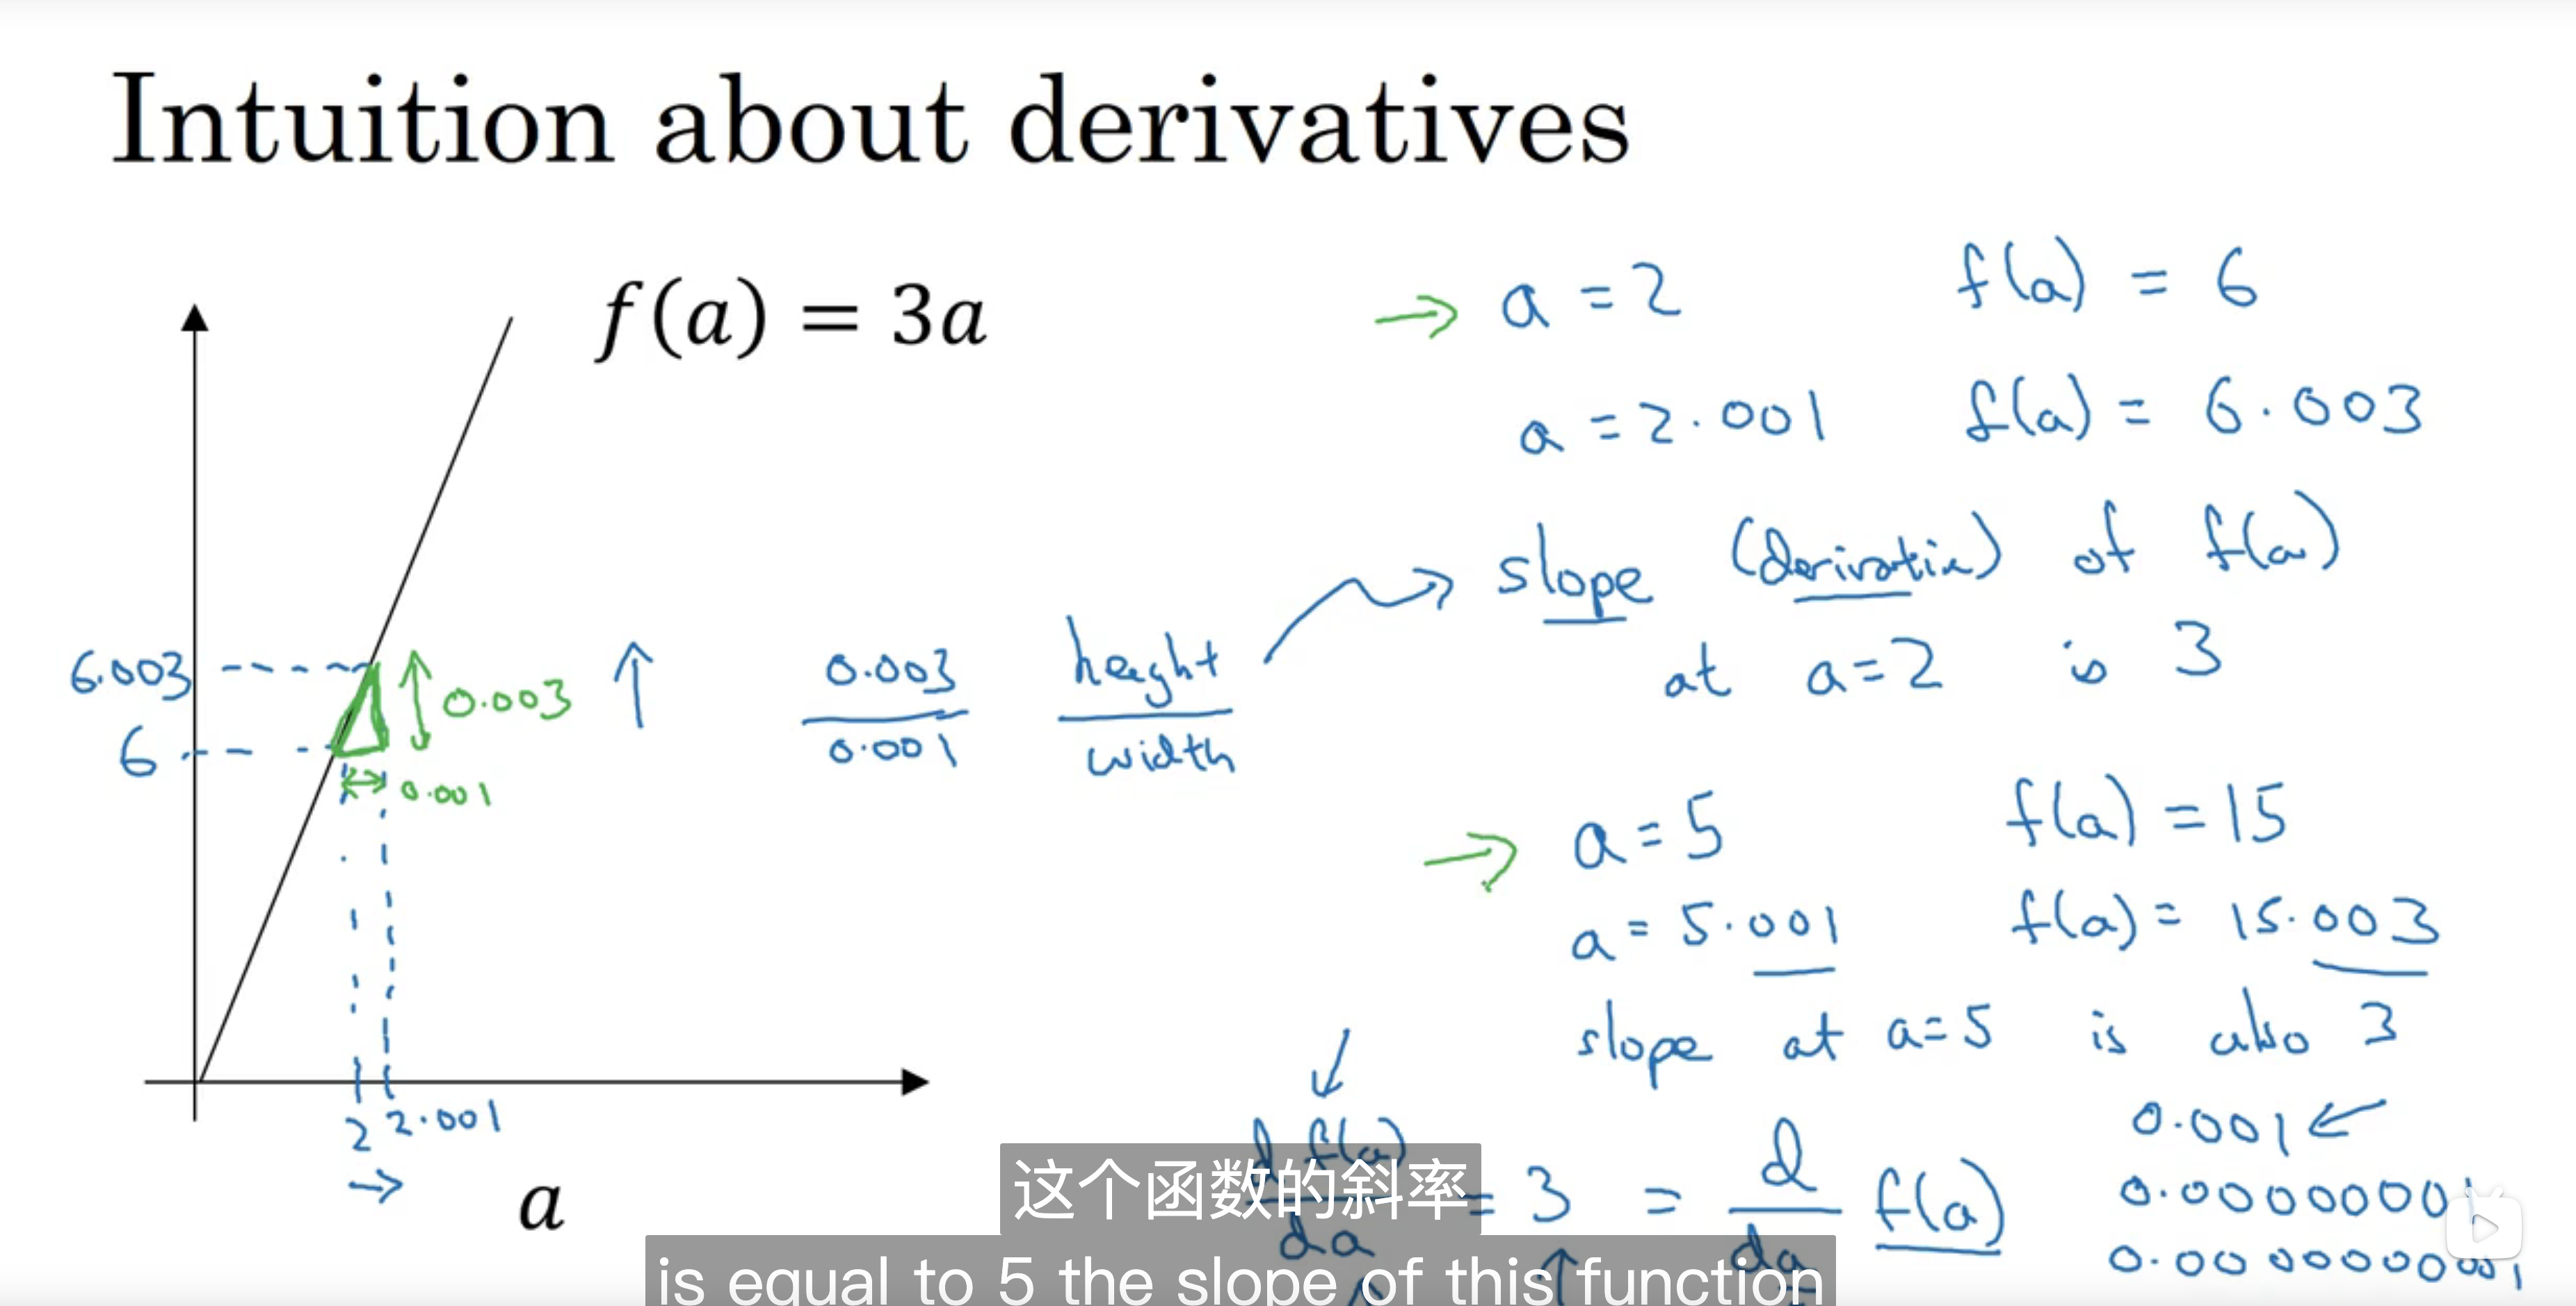 Intuition about derivatives
f(a) = 3a
6.003
6
0.003
0.001
2
2.001
a
↑
0.003
0.001
height
width
→ a = 2 f(a) = 6
a = 2.001 f(a) = 6.003
slope (derivative) of f(a)
at a=2 is 3
→ a = 5 f(a) = 15
a = 5.001 f(a) = 15.003
slope at a=5 is also 3
d f(a)
da
= 3 =
d
da
f(a)
0.001 ←
0.00000001
这个函数的斜率
is equal to 5 the slope of this function